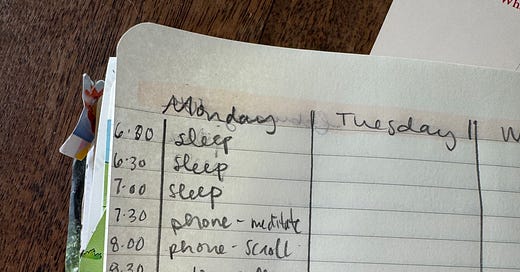 Wh
Monday Tuesday W
6.00 sleep
6.30 sleep
7.00 sleep
7.30 phone - meditate
8.00 phone - scroll
8.30